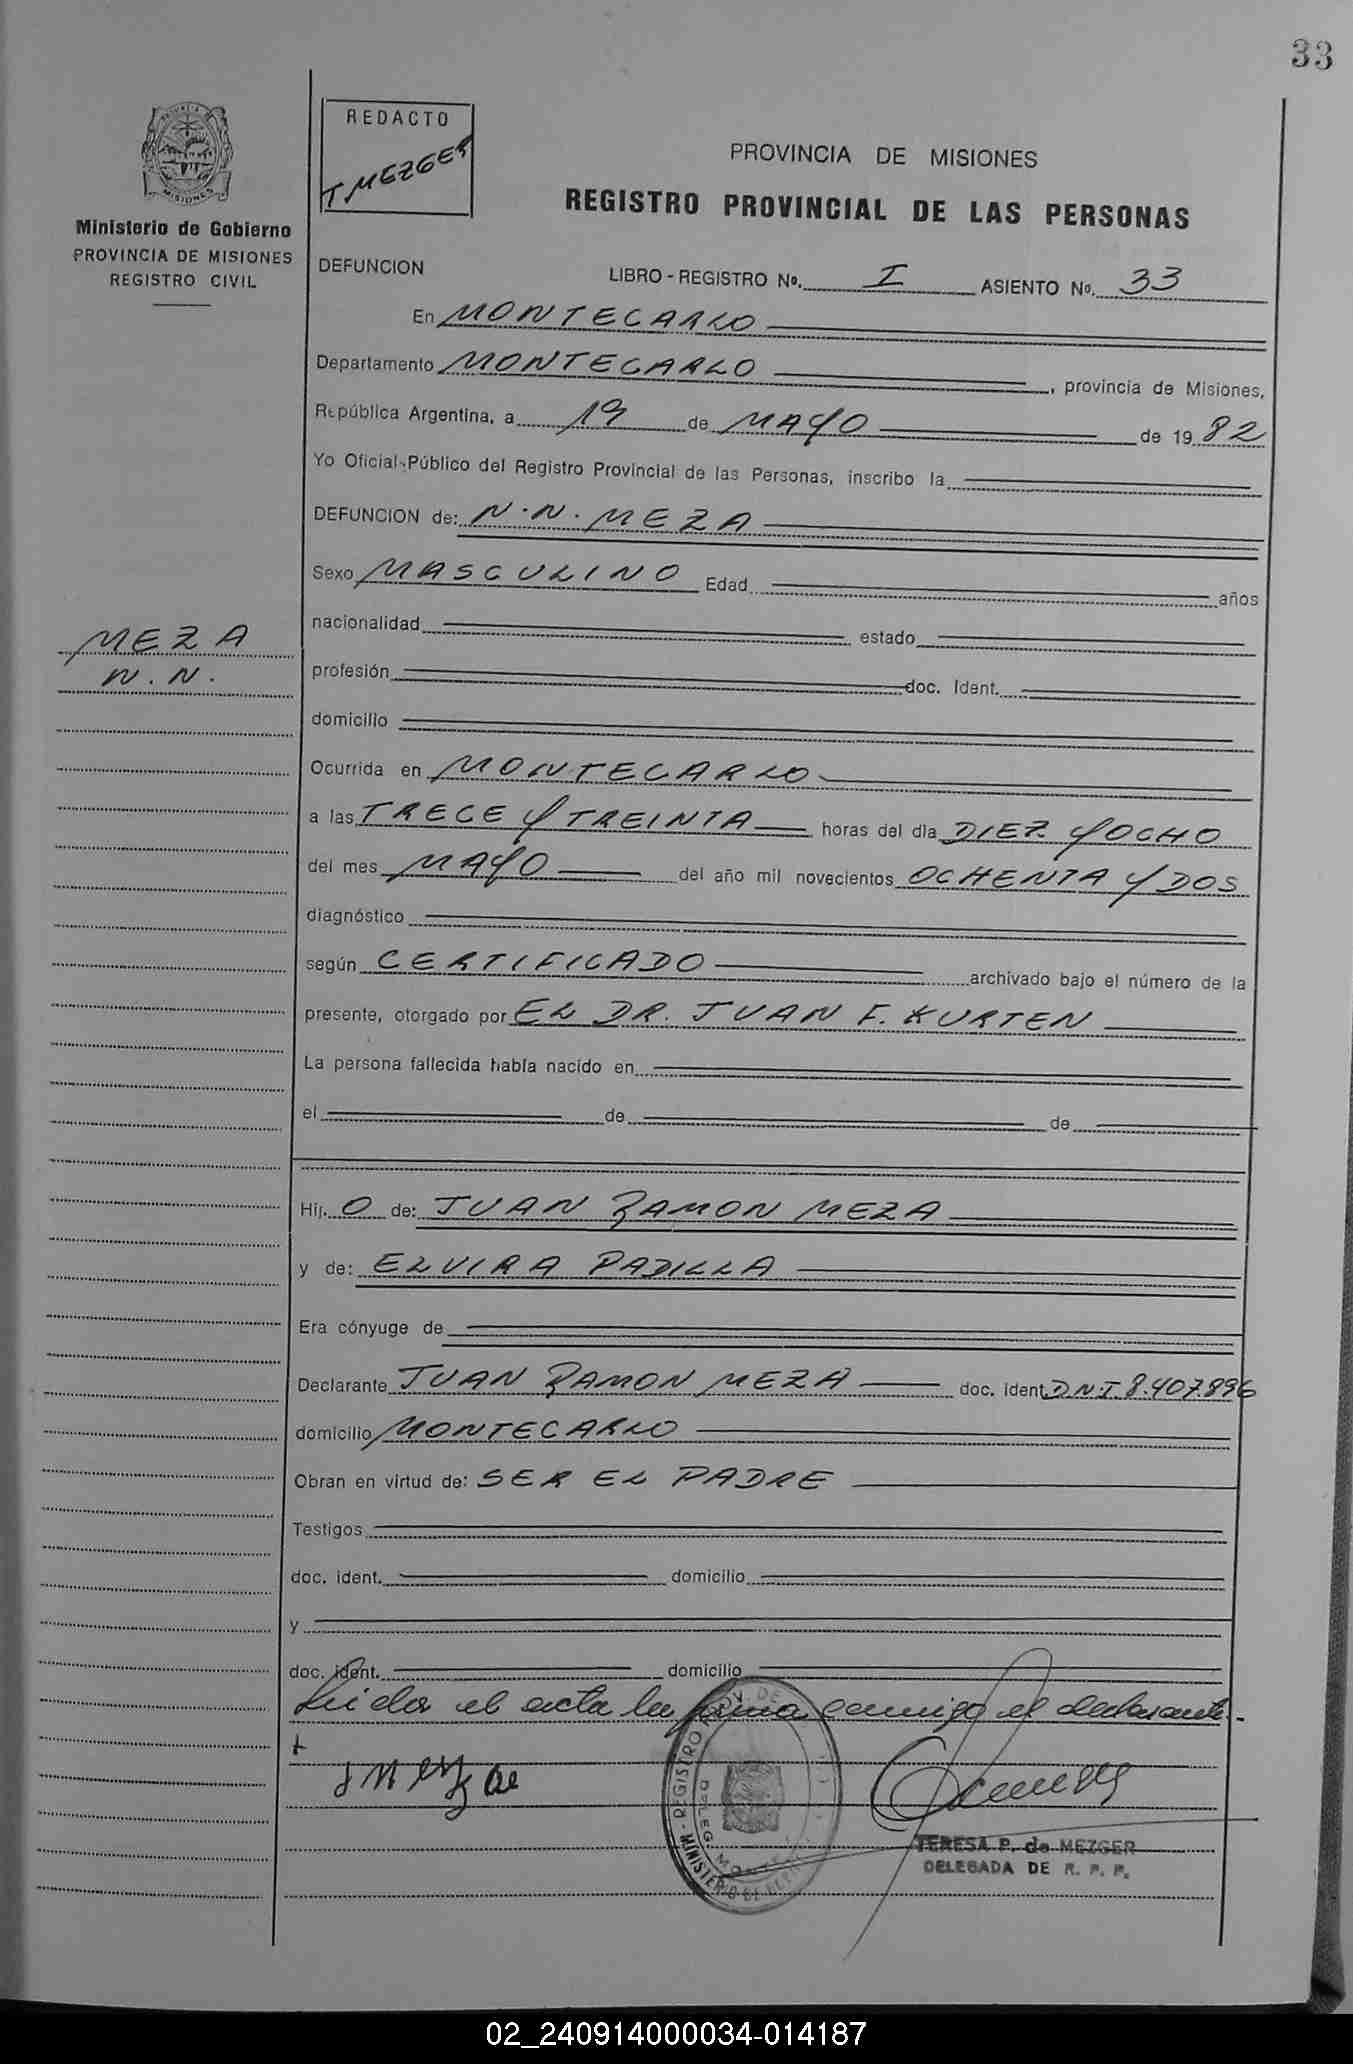 33
REDACTO
T MEZGER
PROVINCIA DE MISIONES
REGISTRO PROVINCIAL DE LAS PERSONAS
MISIONES
Ministerio de Gobierno
PROVINCIA DE MISIONES
REGISTRO CIVIL
DEFUNCION LIBRO - REGISTRO Nº. I ASIENTO Nº. 33
En MONTECARLO
Departamento MONTECARLO, provincia de Misiones,
República Argentina, a 19 de MAYO de 1982
Yo Oficial Público del Registro Provincial de las Personas, inscribo la
DEFUNCION de: N.N. MEZA
Sexo MASCULINO Edad años
nacionalidad estado
MEZA
N.N.
profesión doc. Ident.
domicilio
Ocurrida en MONTECARLO
a las TRECE Y TREINTA horas del día DIEZ Y OCHO
del mes MAYO del año mil novecientos OCHENTA Y DOS
diagnóstico
según CERTIFICADO archivado bajo el número de la
presente, otorgado por EL DR. JUAN F. KURTEN
La persona fallecida había nacido en
el de de
Hij O de: JUAN RAMON MEZA
y de: ELVIRA PADILLA
Era cónyuge de
Declarante JUAN RAMON MEZA doc. ident. D.N.I 8.407.896
domicilio MONTECARLO
Obran en virtud de: SER EL PADRE
Testigos
doc. ident. domicilio
y
doc. ident. domicilio
Leida el acta la firma conmigo el declarante.-
REGISTRO PROV. DE
MINISTERIO DE
DELEG. MONTE
TERESA P. de MEZGER
DELEGADA DE R. P. P.
02_240914000034-014187